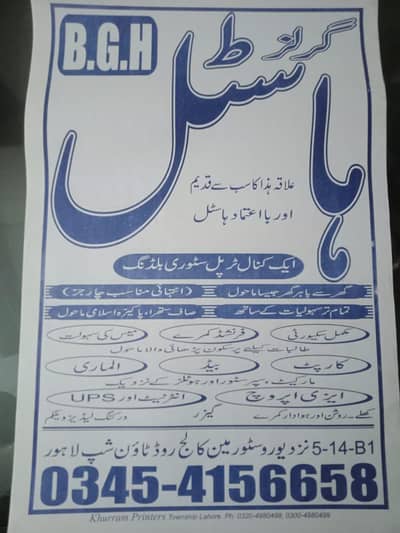 B.G.H
گرلز
ہاسٹل
علاقہ ہذا کا سب سے قدیم
اور بااعتماد ہاسٹل
ایک کنال ٹرپل سٹوری بلڈنگ
گھر سے باہر گھر جیسا ماحول (انتہائی مناسب چارجز)
تمام تر سہولیات کے ساتھ صاف ستھرا، پاکیزہ اسلامی ماحول
مکمل سکیورٹی فرنشڈ کمرے میس کی سہولت
طالبات کیلئے پرسکون پڑھائی والا ماحول
کارپٹ بیڈ الماری
مارکیٹ، سپر سٹور اور ہوٹلز کے نزدیک
ایزی اپروچ انٹرنیٹ اور UPS
کھلے، روشن اور ہوادار کمرے گیزر ورکنگ لیڈیز ویلکم
5-14-B1 نزد یورو سٹور مین کالج روڈ ٹاؤن شپ لاہور
0345-4156658
Khurram Printers Township Lahore. Ph: 0320-4980499, 0300-4980499